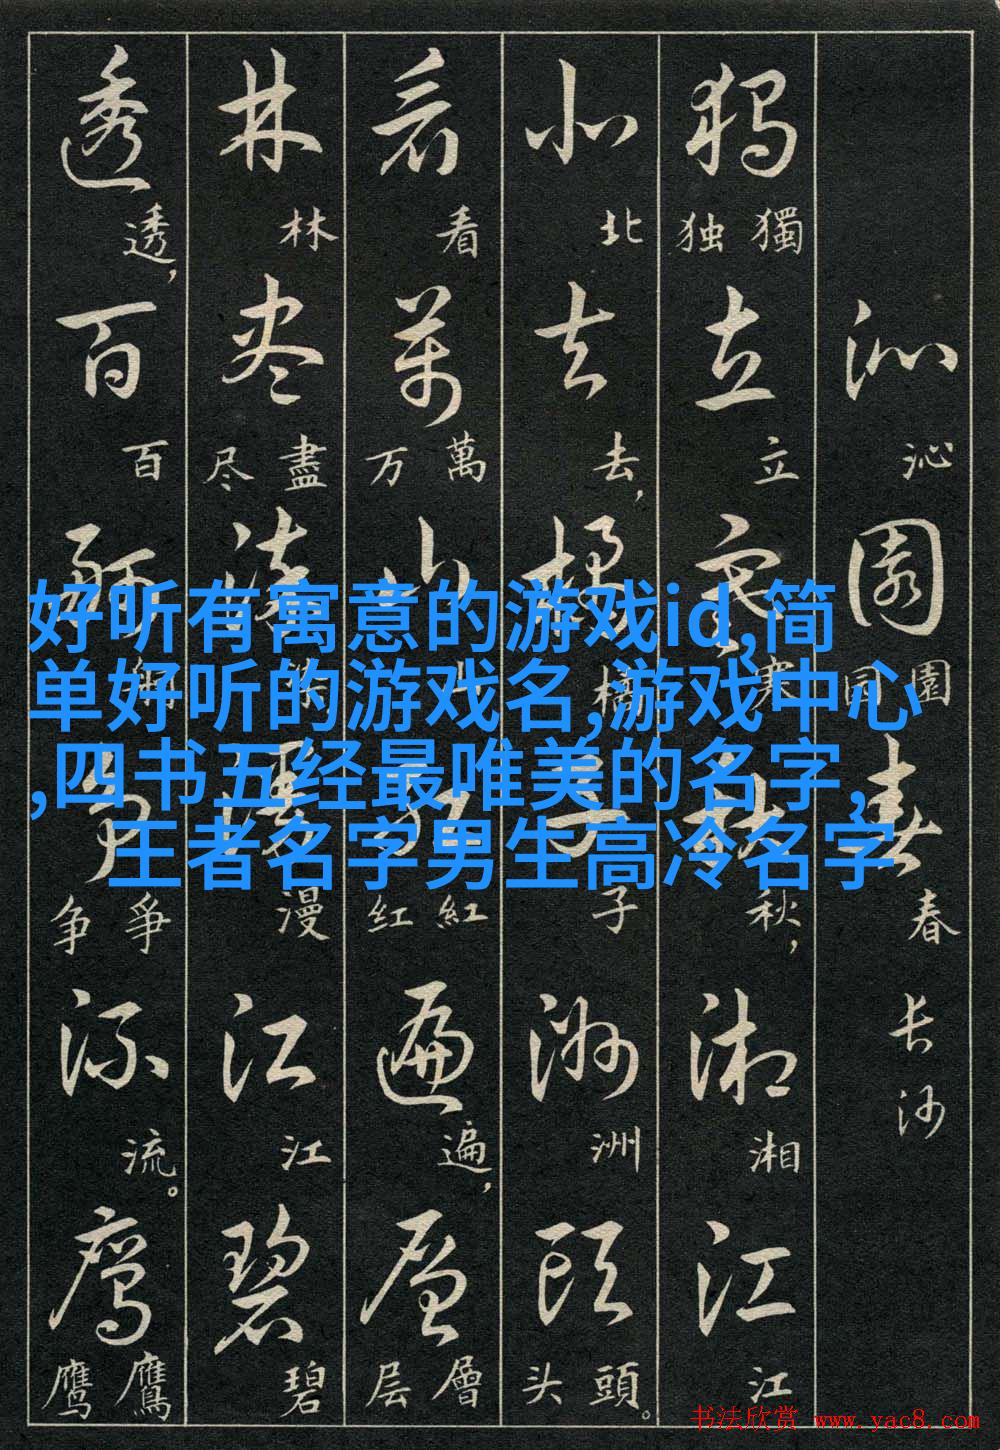 沁 沁 园 园 園 春 春 长沙
独 独 獨 立 立 寒 寒 秋 秋, 湘 湘 江 江
北 北 去 去, 橘 橘 子 子 洲 洲 頭 头 頭。
看 看 萬 万 萬 山 山 红 红 紅 遍 遍, 層 层 層
林 林 尽 尽 盡 染 染 漫 漫 江 江 碧 碧
透 透, 百 百 舸 舸 争 争 爭 流 流。 鹰 鹰 鷹
好听有寓意的游戏id,简
单好听的游戏名,游戏中心
,四书五经最唯美的名字,
王者名字男生高冷名字
书法欣赏 www.yac8.com